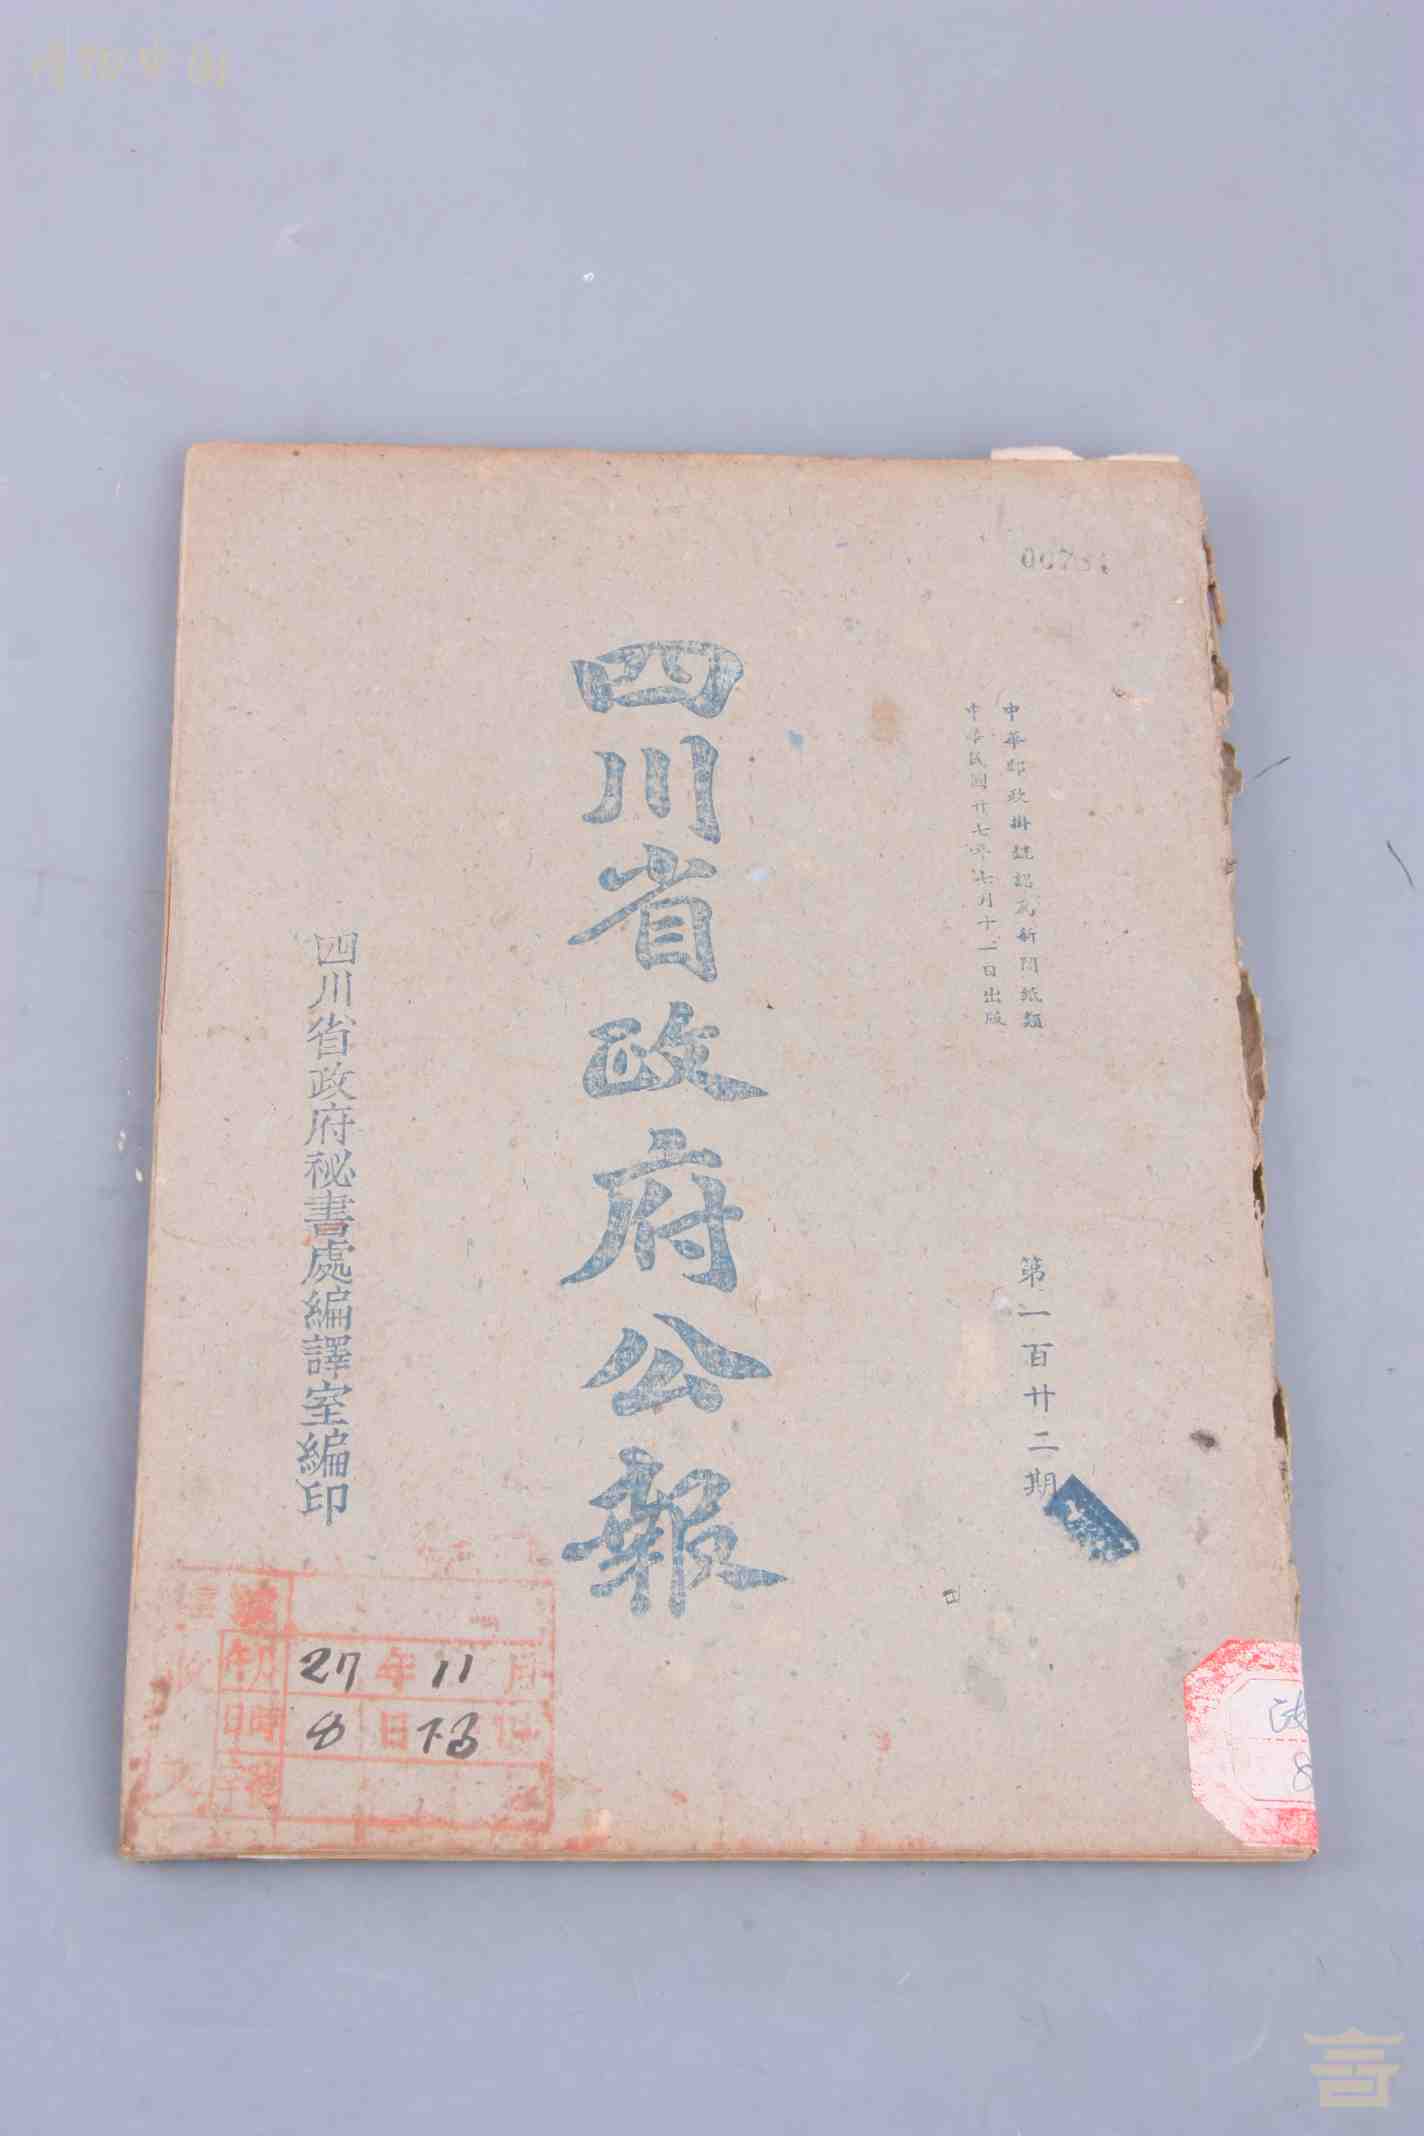 博物中国
中華郵政掛號認為新聞紙類
中華民國廿七年七月十一日出版
第一百廿二期
四川省政府公報
四川省政府秘書處編譯室編印
27年11月
8日下3